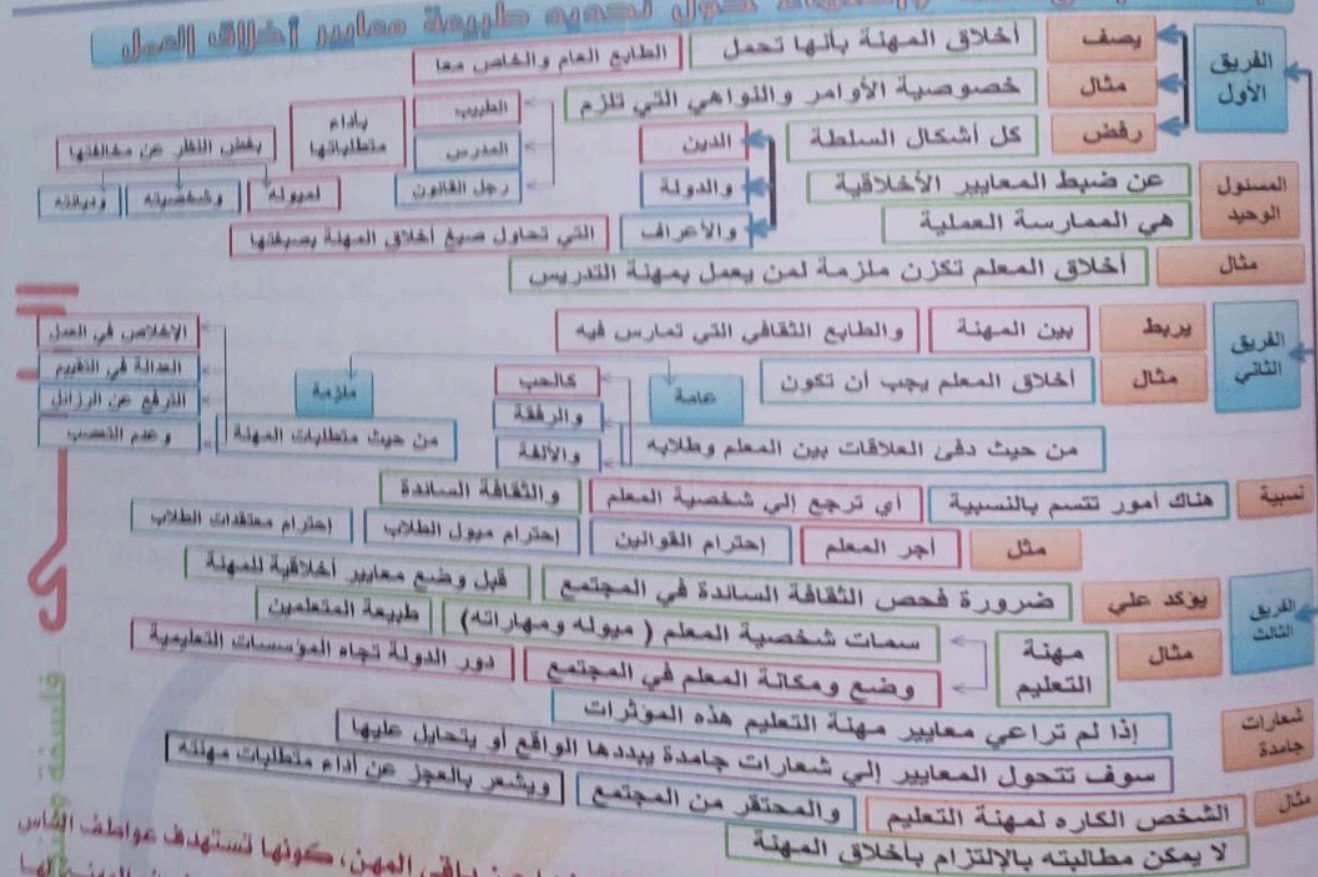 حول تحديد طبيعة معايير أخلاق العمل
الفريق الأول
يصف
أخلاق المهنة بأنها تحمل
الطابع العام والخاص معا
مثال
خصوصية الأوامر والنواهي التي تلزم
الطبيب
المدرس
رجل القانون
بأداء متطلباتها
بغض النظر عن مخالفتها
لميوله
وشخصيته
وديانته
رفض
كل أشكال السلطة
الدين
والدولة
والأعراف
التي تحاول صبغ أخلاق المهنة بصبغتها
المسئول الوحيد
عن ضبط المعايير الأخلاقية
هي الممارسة العملية
مثال
أخلاق المعلم تكزن ملزمة لمن يعمل بمهنة التدريس
الفريق الثاني
يربط
بين المهنة
والطابع الثقافي التي تمارس فيه
مثال
أخلاق المعلم يجب أن تكون
عامة
من حيث دفئ العلاقات بين المعلم وطلابه
كالحب
والرفقة
والألفة
ملزمة
من حيث متطلبات المهنة
الإخلاص في العمل
العدالة في التقييم
الترفع عن الرزائل
وعدم التعصب
نسبية
هناك أمور تتسم بالنسبية
أي ترجع إلي شخصية المعلم
والثقافة السائدة
مثل
أجر المعلم
إحترام القوانين
إحترام ميول الطلاب
إحترام معتقدات الطلاب
الفريق الثالث
يؤكد علي
ضرورة فحص الثقافة السائدة في المجتمع
قبل وضع معايير أخلاقية للمهنة
مثال
مهنة التعليم
سمات شخصية المعلم ( ميوله ومهاراته)
طبيعة المتعلمين
وضع ومكانة المعلم في المجتمع
دور الدولة تجاه المؤسسات التعليمية
شعارات جامدة
إذا لم تراعي معايير مهنة التعليم هذه المؤثرات
سوف تتحول المعايير إلي شعارات جامدة يبددها الواقع أو يتحايل عليها
مثال
الشخص الكاره لمهنة التعليم
والمحتقر من المجتمع
ويشعر بالعجز عن أداء متطلبات مهنته
لا يمكن مطالبته بالإلتزام بأخلاق المهنة
عن باقي المهن، كونها تستهدف عواطف الناس
فلسفة